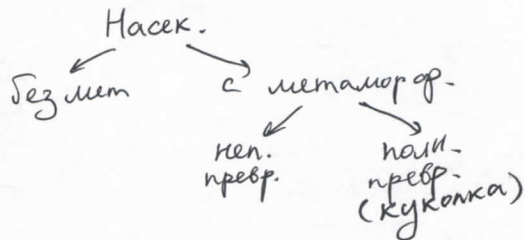 Насек.
без мет с метаморф.
неп. поли-
превр. превр.
(куколка)